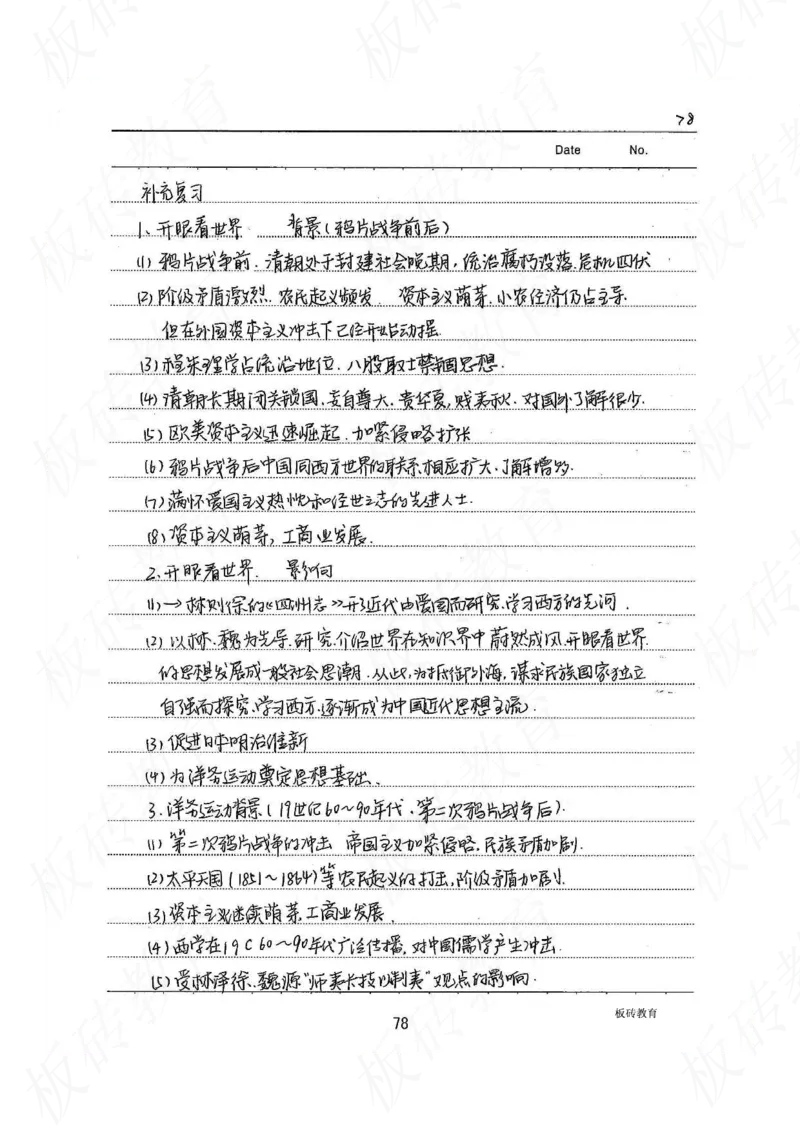 78
Date No.
补充复习
1、开眼看世界 背景(鸦片战争前后)
(1) 鸦片战争前.清朝处于封建社会晚期,统治腐朽没落.危机四伏
(2) 阶级矛盾激烈.农民起义频发. 资本主义萌芽.小农经济仍占主导.
但在外国资本主义冲击下已经开始动摇.
(3) 程朱理学占统治地位.八股取士禁锢思想.
(4) 清朝长期闭关锁国、妄自尊大、贵华夏,贱夷狄.对国外了解很少.
(5) 欧美资本主义迅速崛起.加紧侵略扩张
(6) 鸦片战争后中国同西方世界的联系相应扩大、了解增多.
(7) 满怀爱国主义热忱和经世之志的先进人士.
(8) 资本主义萌芽,工商业发展.
2、开眼看世界. 影响
(1)→林则徐的《四州志》开了近代由爱国而研究、学习西方的先河.
(2) 以林、魏为先导.研究、介绍世界在知识界中蔚然成风.开眼看世界.
的思想发展成一般社会思潮.从此,为抵御外海,谋求民族国家独立
自强而探究、学习西方、逐渐成为中国近代思想主流).
(3) 促进日本明治维新
(4) 为洋务运动奠定思想基础、
3.洋务运动背景(19世纪60~90年代.第二次鸦片战争后).
(1) 第二次鸦片战争的冲击 帝国主义加紧侵略.民族矛盾加剧.
(2) 太平天国(1851~1864)等农民起义的打击,阶级矛盾加剧.
(3) 资本主义继续萌芽.工商业发展.
(4) 西学在19C 60~90年代广泛传播,对中国儒学产生冲击.
(5) 受林泽徐、魏源"师夷长技以制夷"观点的影响.
78
板砖教育